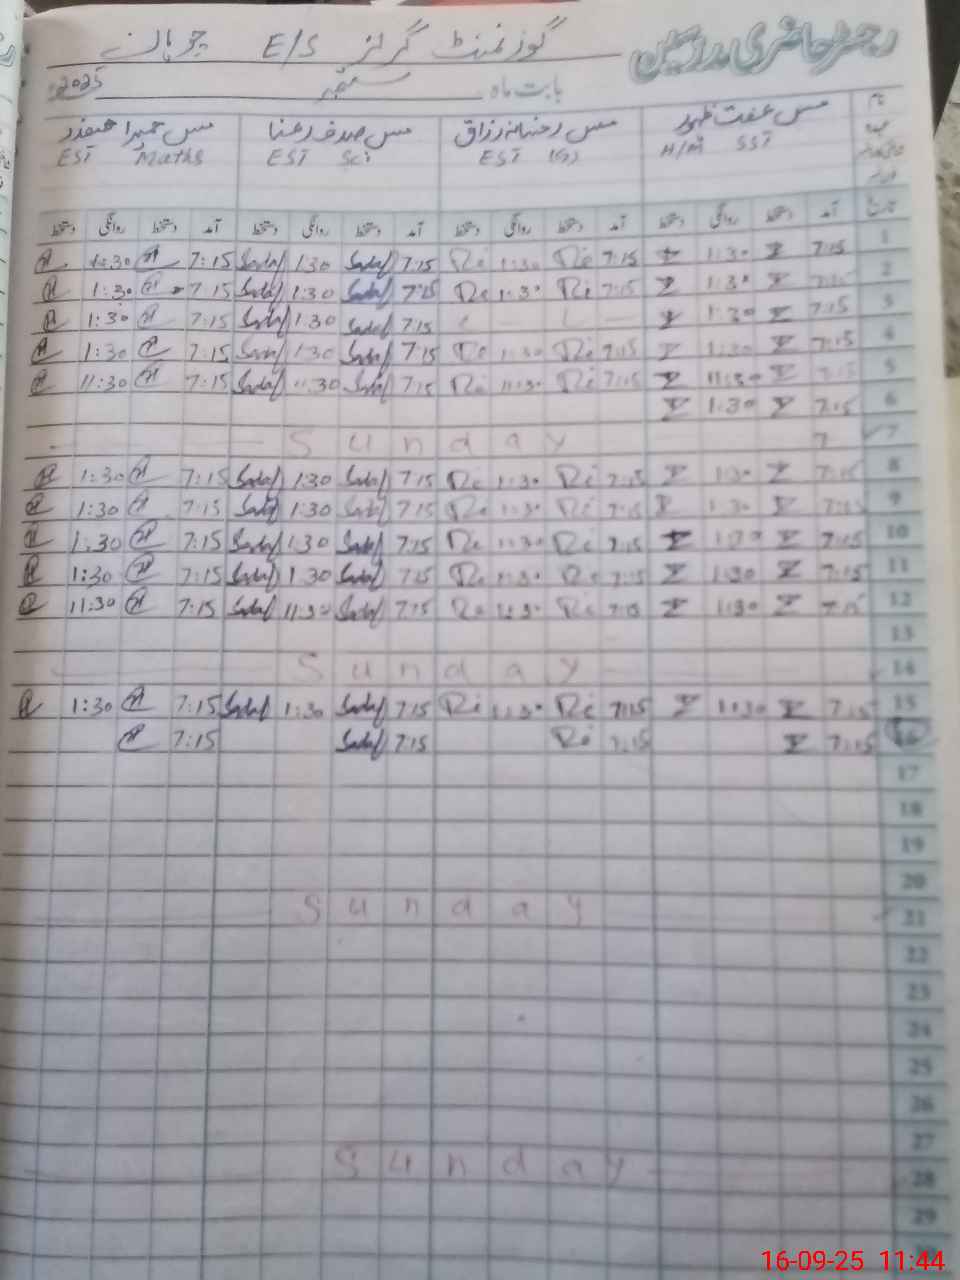 رجسٹر حاضری مدرسین گورنمنٹ گرلز E/S چوہان
بابت ماہ ستمبر 2025
نام مس عفت ظہور مس رخسانہ رزاق مس صدف رعنا مس حمیرا صفدر
عہدہ H/M SST EST (G) EST Sci EST Maths
تاریخ آمد دستخط روانگی دستخط آمد دستخط روانگی دستخط آمد دستخط روانگی دستخط آمد دستخط روانگی دستخط
1 7:15 1:30 7:15 Ri 1:30 Ri 7:15 Sadaf 1:30 Sadaf 7:15 1:30
2 7:15 1:30 7:15 Ri 1:30 Ri 7:15 Sadaf 1:30 Sadaf 7:15 1:30
3 7:15 1:30 L L 7:15 Sadaf 1:30 Sadaf 7:15 1:30
4 7:15 1:30 7:15 Ri 1:30 Ri 7:15 Sadaf 1:30 Sadaf 7:15 1:30
5 7:15 11:30 7:15 Ri 11:30 Ri 7:15 Sadaf 11:30 Sadaf 7:15 11:30
6 7:15 1:30
7 7 Sunday
8 7:15 1:30 7:15 Ri 1:30 Ri 7:15 Sadaf 1:30 Sadaf 7:15 1:30
9 7:15 1:30 7:15 Ri 1:30 Ri 7:15 Sadaf 1:30 Sadaf 7:15 1:30
10 7:15 1:30 7:15 Ri 1:30 Ri 7:15 Sadaf 1:30 Sadaf 7:15 1:30
11 7:15 1:30 7:15 Ri 1:30 Ri 7:15 Sadaf 1:30 Sadaf 7:15 1:30
12 7:15 1:30 7:15 Ri 11:30 Ri 7:15 Sadaf 11:30 Sadaf 7:15 11:30
13
14 Sunday
15 7:15 1:30 7:15 Ri 1:30 Ri 7:15 Sadaf 1:30 Sadaf 7:15 1:30
16 7:15 7:15 Ri 7:15 Sadaf 7:15
17
18
19
20
21 Sunday
22
23
24
25
26
27
28 Sunday
29
16-09-25 11:44